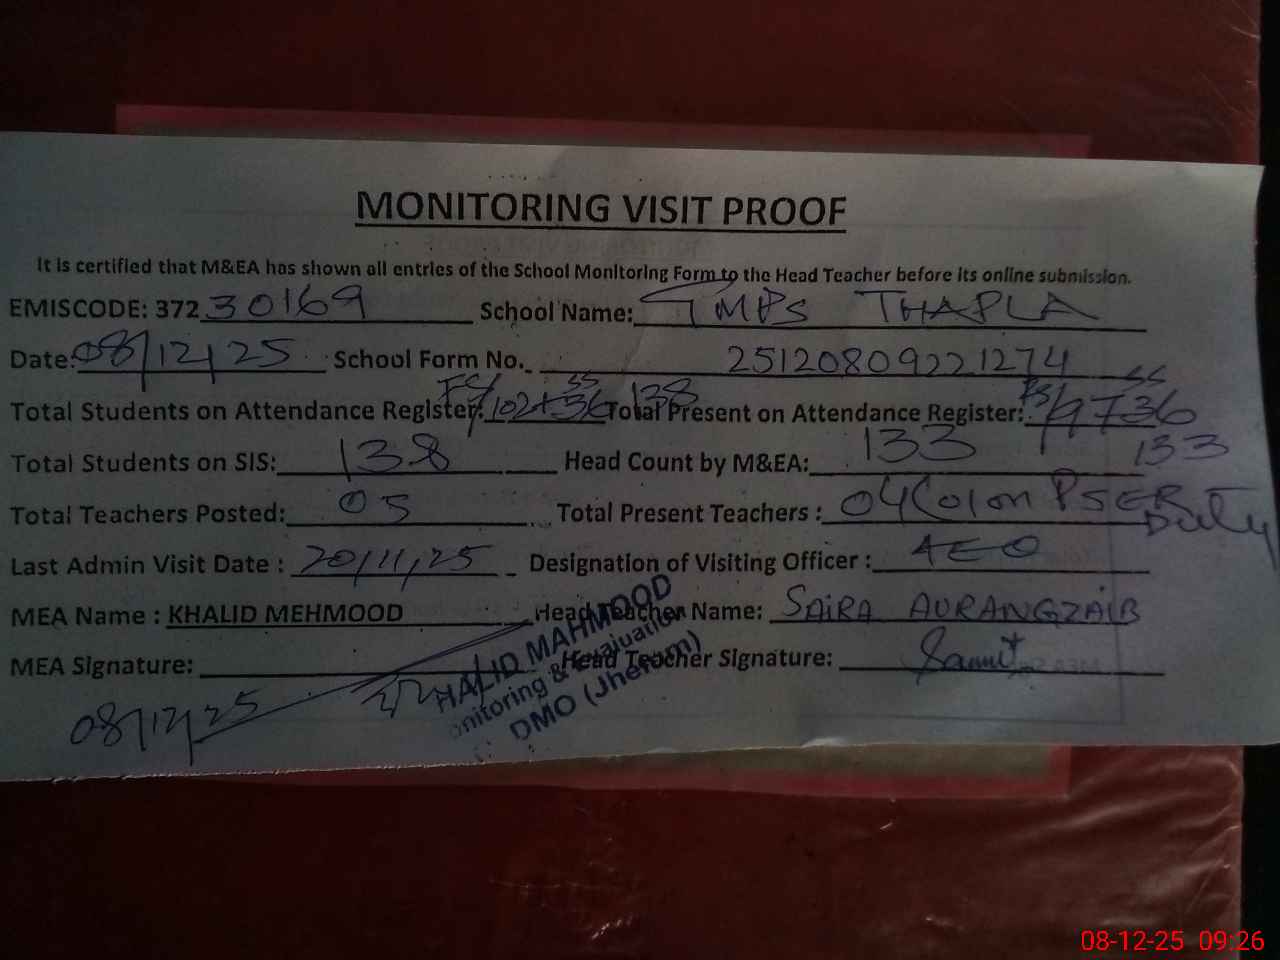 MONITORING VISIT PROOF
It is certified that M&EA has shown all entries of the School Monitoring Form to the Head Teacher before its online submission.
EMISCODE: 37230169 School Name: GMPS THAPLA
Date: 08/12/25 School Form No. 25120809221274
Total Students on Attendance Register: 102+36 138 Total Present on Attendance Register: 97 36
SS SS
Total Students on SIS: 138 Head Count by M&EA: 133 133
Total Teachers Posted: 05 Total Present Teachers : 04 (01 on PSER Duty
Last Admin Visit Date : 20/11/25 Designation of Visiting Officer : AEO
MEA Name : KHALID MEHMOOD Head Teacher Name: SAIRA AURANGZAIB
MEA Signature: Head Teacher Signature:
08/12/25
HALID MAHMOOD
onitoring & Evaluation
DMO (Jhelum)
08-12-25 09:26